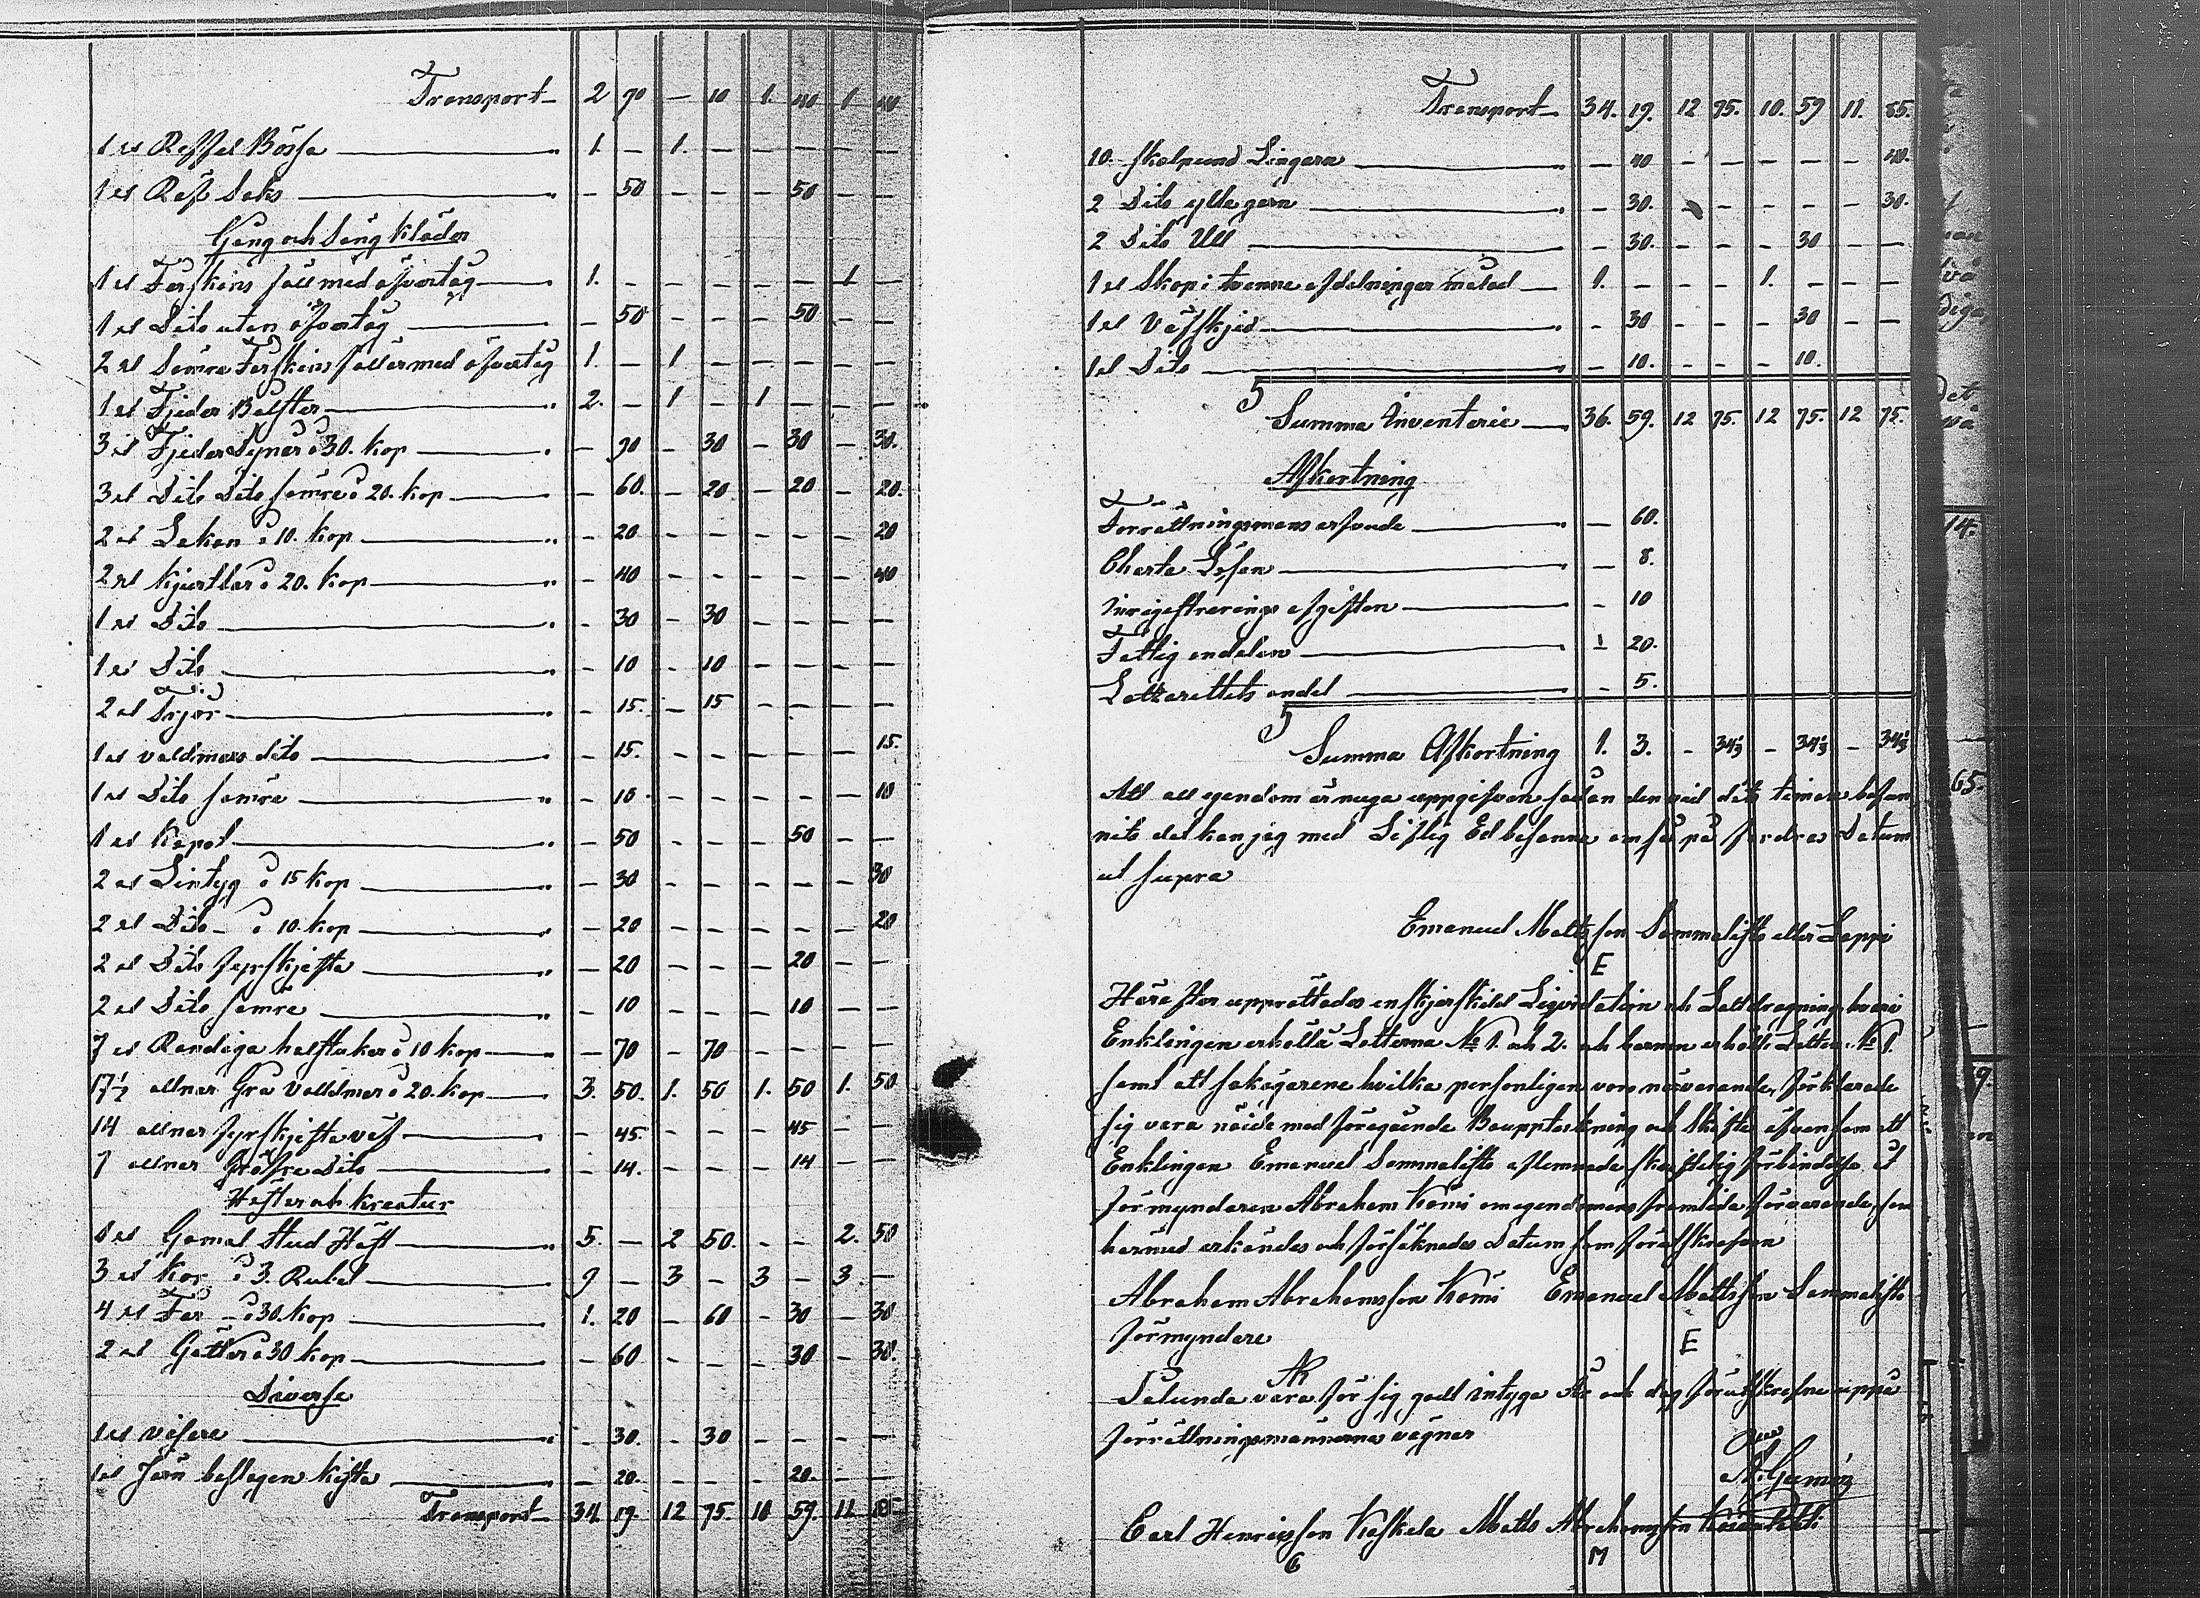 Transport — 2 90 — 10 1. 40 1 40
1 st Reffel Bössa — 1. — 1. — — — — —
1 st Res Seks — — 50 — — — 50 — —
Gång och Säng Kläder
1 st Forskins fäll med öfvertÿg — 1. — — — — — 1 —
1 st Dito utan öfvertÿg — — 50 — — — 50 — —
2 st Sämre Forskins fällar med öfvertÿg 1. — 1 — — — — —
1 st Fjeder Bolster — 2. — 1 — 1 — — —
3 st Fjeder Dÿnor å 30. kop — — 90 — 30 — 30 — 30.
3 st Dito Dito sämre å 20. kop — — 60. — 20 — 20 — 20.
2 st Lakan å 10. kop — — 20 — — — — — 20
2 st Kjortlar å 20. kop — — 40 — — — — — 40
1 st Dito — — 30 — 30 — — — —
1 st Dito — — 10 — 10 — — — —
2 st Tröjor — — 15. — 15 — — — —
1 st valdmars dito — — 15. — — — — — 15.
1 st Dito sämre — — 10 — — — — — 10
1 st Kapot — — 50 — — — 50 — —
2 st Lintyg å 15 kop — — 30 — — — — — 30
2 st Dito — å 10. kop — — 20 — — — — — 20
2 st Dito fyrskjefta — — 20 — — — 20 — —
2 st Dito sämre — — 10 — — — 10 — —
7 st Randiga halstukar å 10 kop — — 70 — 70 — — — —
17½ allnar Grå Valldmar å 20. kop — 3. 50. 1. 50 1. 50 1. 50
14 allnar fyrskjefta väf — — 45. — — — 45 — —
7 allnar Gröfre Dito — — 14. — — — 14 — —
Hästar och kreatur
1 st Gamal Stud Häst — 5. — 2 50. — — 2. 50
3 st Kor å 3. Rubel — 9 — 3 — 3 — 3. —
4 st Får — å 30. kop — 1. 20 — 60 — 30 — 30
2 st Gettter å 30 kop — — 60 — — — 30 — 30.
Diverse
1 st väfsre — — 30. — 30 — — — —
1 st Järn beslagen kista — — 20. — — — 20. — —
Transport — 34. 19. 12 75. 10 59. 11. 85
Transport — 34. 19. 12 75. 10. 59 11. 85.
10. skålpund Lingarn — — 40 — — — — — 40.
2 Dito ylle garn — — 30. — — — — — 30.
2 Dito Ull — — 30. — — — 30 — —
1 st Skåp i tvenne afdelningar målad — 1. — — — 1. — — —
1 st Väfskjed — — 30 — — — 30 — —
1 st Dito — — 10. — — — 10. — —
Summa Inventarie — 36. 59. 12 75. 12 75. 12 75.
Afkortning
Förrättningsmans arfvode — — 60.
Charta Lösen — — 8.
Inregistrerings afgiften — — 10
Fattig andelen — — 20.
Lazarettets andel — — 5.
Summa Afkortning 1. 3. — 34⅓ — 34⅓ — 34⅓
Att all egendom är noga uppgifven sådan den vid döds timan befan
nits det kan jag med Liflig Ed besanna om så på fordras Datum
ut supra
Emanuel Mattsson Sammalisto eller Lappi
E
Härefter upprättades en skjerskild Liqvidation och Lottdragning hvari
Enklingen erhöll Lotterna No 1. och 2. och barnen erhöll Lotten No 1.
samt att sakägarene hvilka personligen voro närvarande, förklarade
sig vara nöjde med föregående Boupptekning och Skifte äfvensom att
Enklingen Emanuel Sammalisto aflemnade skriftelig förbindelse åt
förmyndaren Abraham Kömi om egendomens framtida förvarande, som
härmed erkändes och försäknades Datum som förutskrefven
Abraham Abrahamsson Kömi Emanuel Mattsson Sammalisto
förmyndare E
Sålunda vara för sig gådt intyga År och dag förutskrefne uppå
förrättningsmännernas vägnar
Carl Henricsson Keskela Matts Abrahamsson
C M
14.
65.